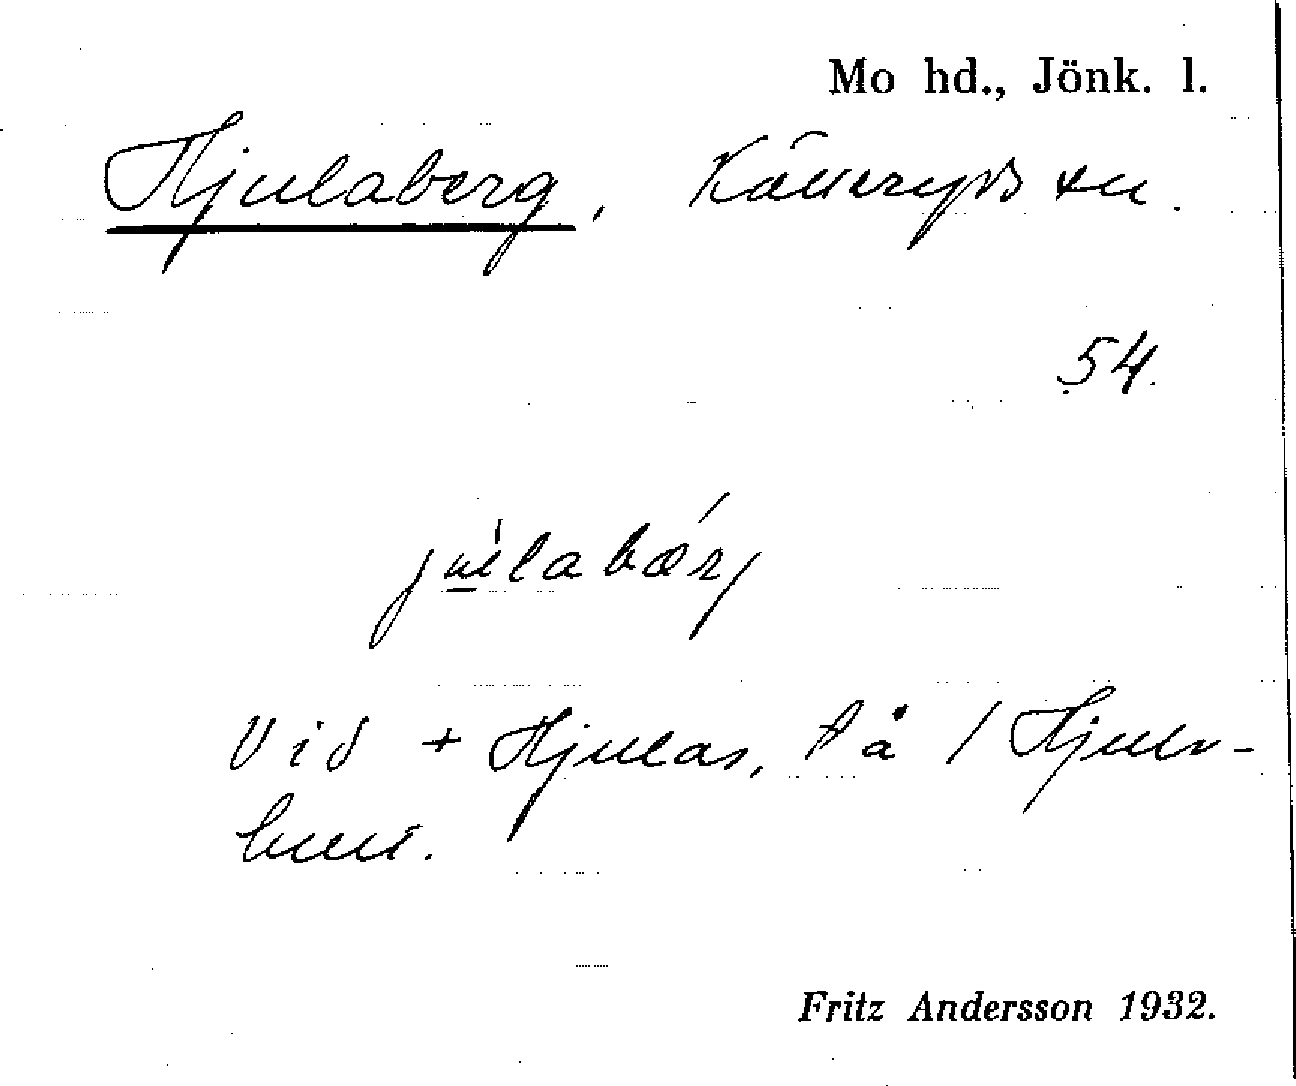 Mo hd., Jönk. l.
Hjulaberg, Källeryds sn.
54.
julabærj
Vid + Hjulas, på / Hjuls-
hult.
Fritz Andersson 1932.